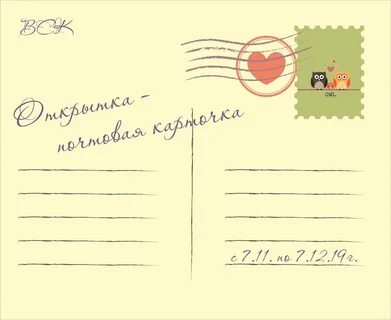 ВСК
OWL
Открытка -
почтовая карточка
с 7.11. по 7.12.19г.